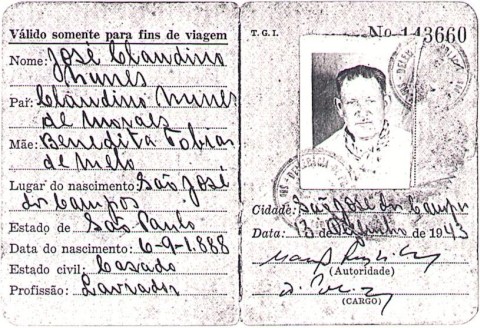 Válido somente para fins de viagem
Nome: José Claudino
Nunes
Pai: Claudino Nunes
de Moraes
Mãe: Benedita Tobias
de Mello
Lugar do nascimento: São José
dos Campos
Estado de São Paulo
Data do nascimento: 6-9-1.888
Estado civil: Casado
Profissão: Lavrador
T. G. I. No 143660
Cidade: São José dos Campos
Data: 13 de 1943
(Autoridade)
(CARGO)